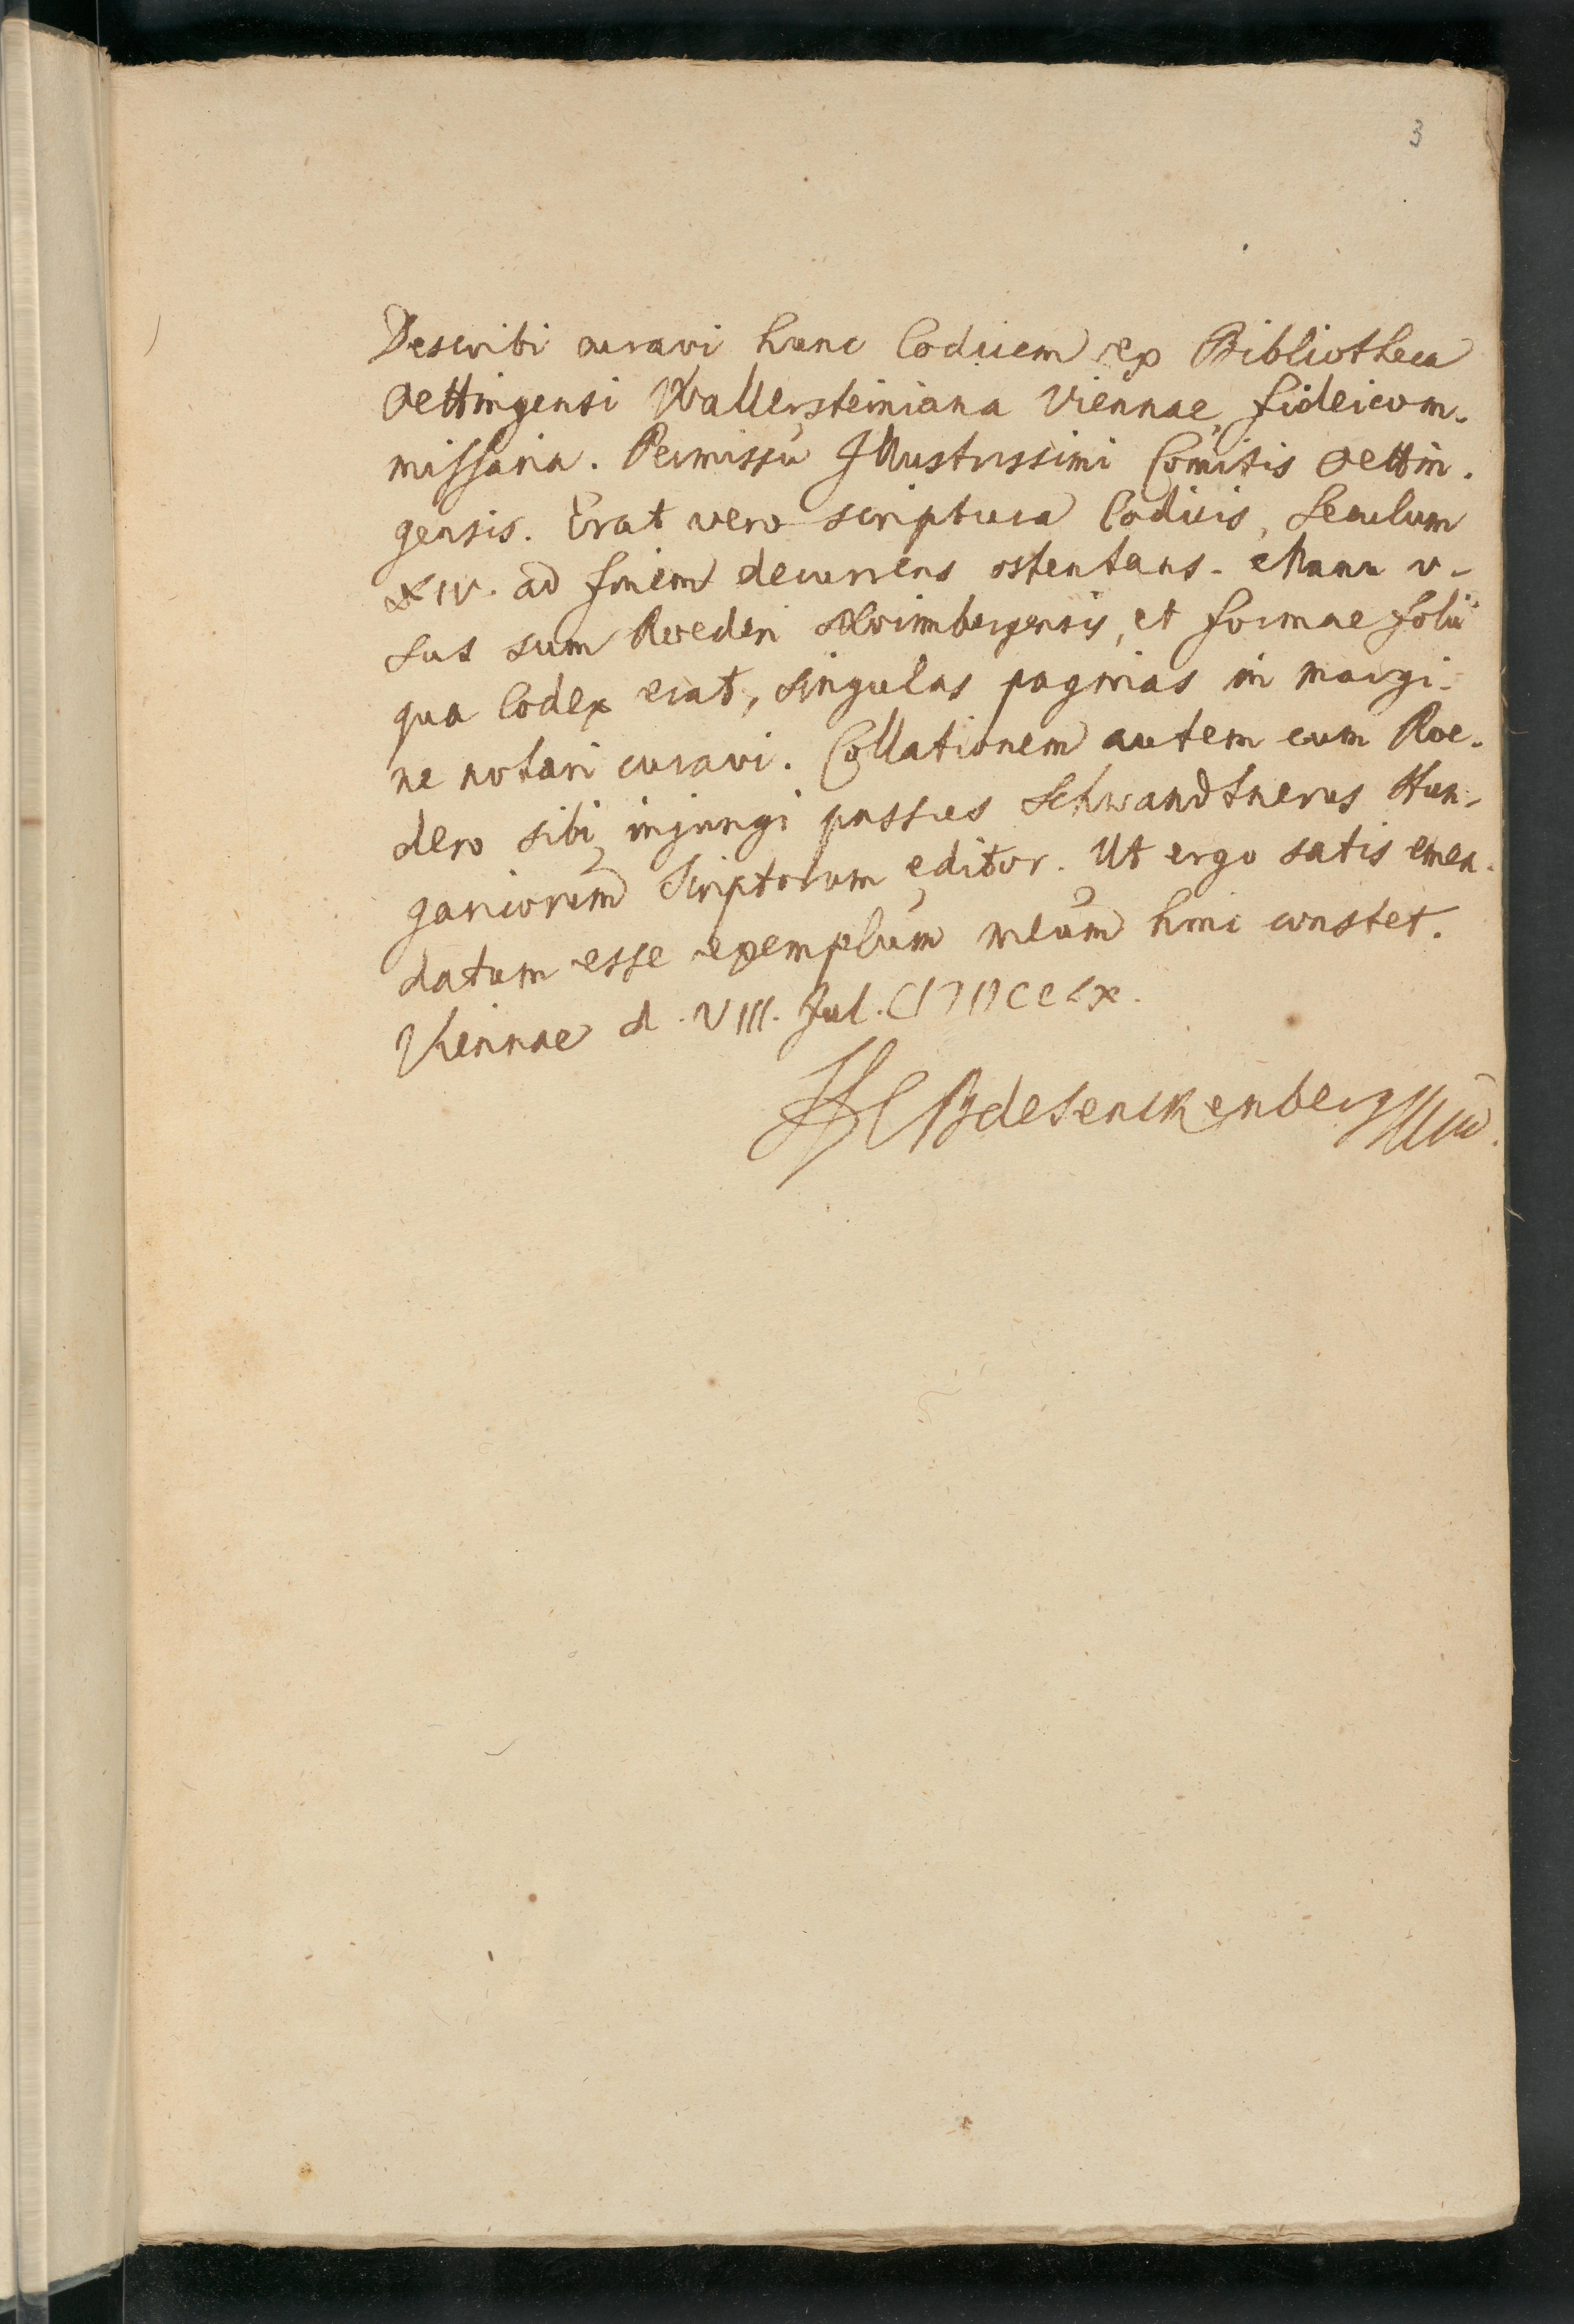 3
Describi curavi hunc Codicem ex Bibliotheca
Oettingensi Wallersteiniana Viennae, fideicom-
missaria. Permissu Illustrissimi Comitis Oettin-
gensis. Erat vero scriptura Codicis, Seculum
XIV. ad finem decurrens ostentans. Manu u-
sus sum Roederi Norimbergensis, et formae folii
qua Codex erat, singulas paginas in margi-
ne notari curavi. Collationem autem cum Roe-
dero sibi injungi passus Schwandtnerus Hun-
garicorum Scriptorum editor. Ut ergo satis emen-
datum esse exemplum meum hinc constet.
Viennae d. VIII. Jul. CIƆIƆCCLX.
HCBdeSenckenberg